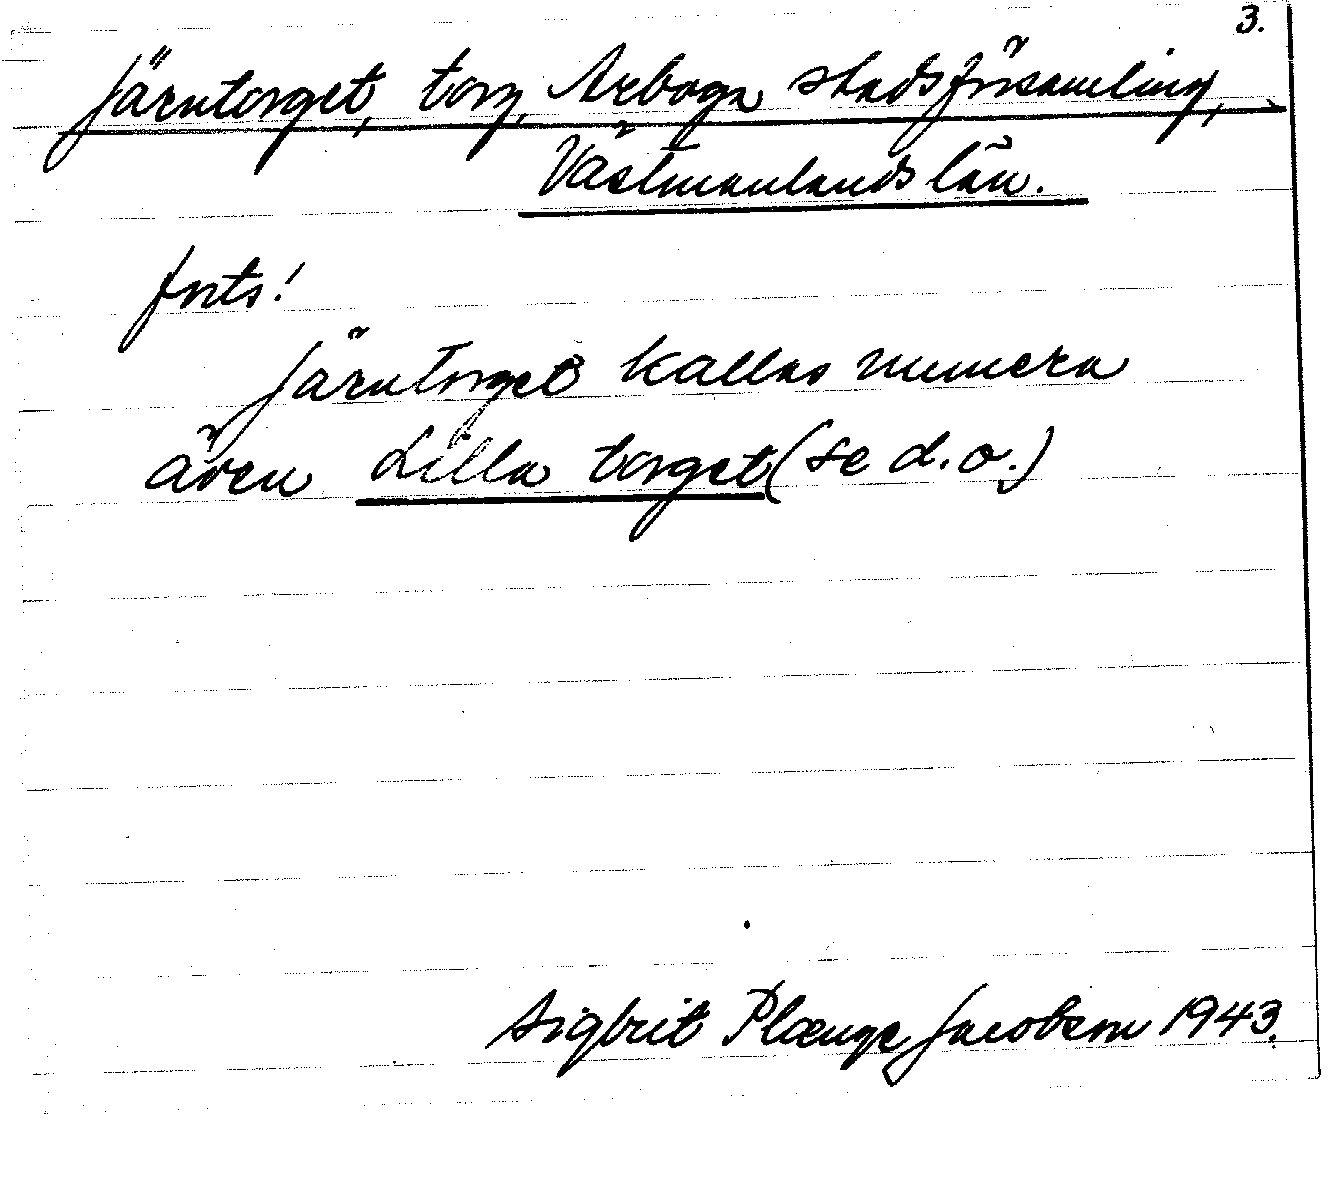 3.
Järntorget, torg, Arboga stadsförsamling,
Västmanlands län.
forts!
Järntorget kallas numera
även Lilla torget (se d.o.)
Sigbrit Plænge Jacobson 1943.